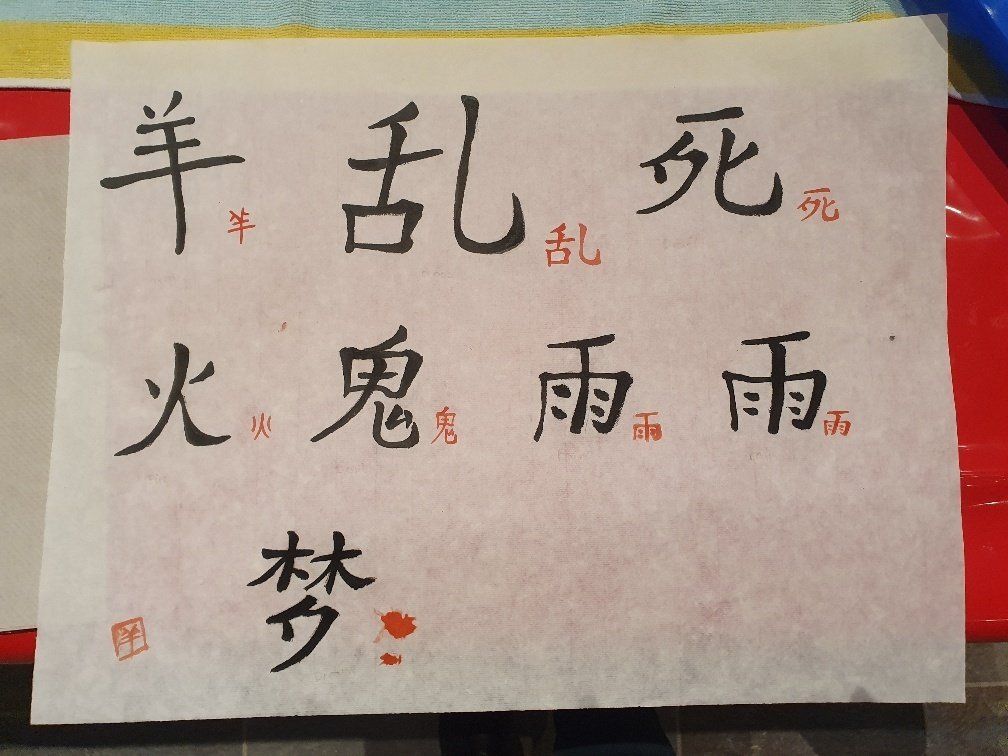 羊 羊 乱 乱 死 死
火 火 鬼 鬼 雨 雨 雨 雨
羊 梦